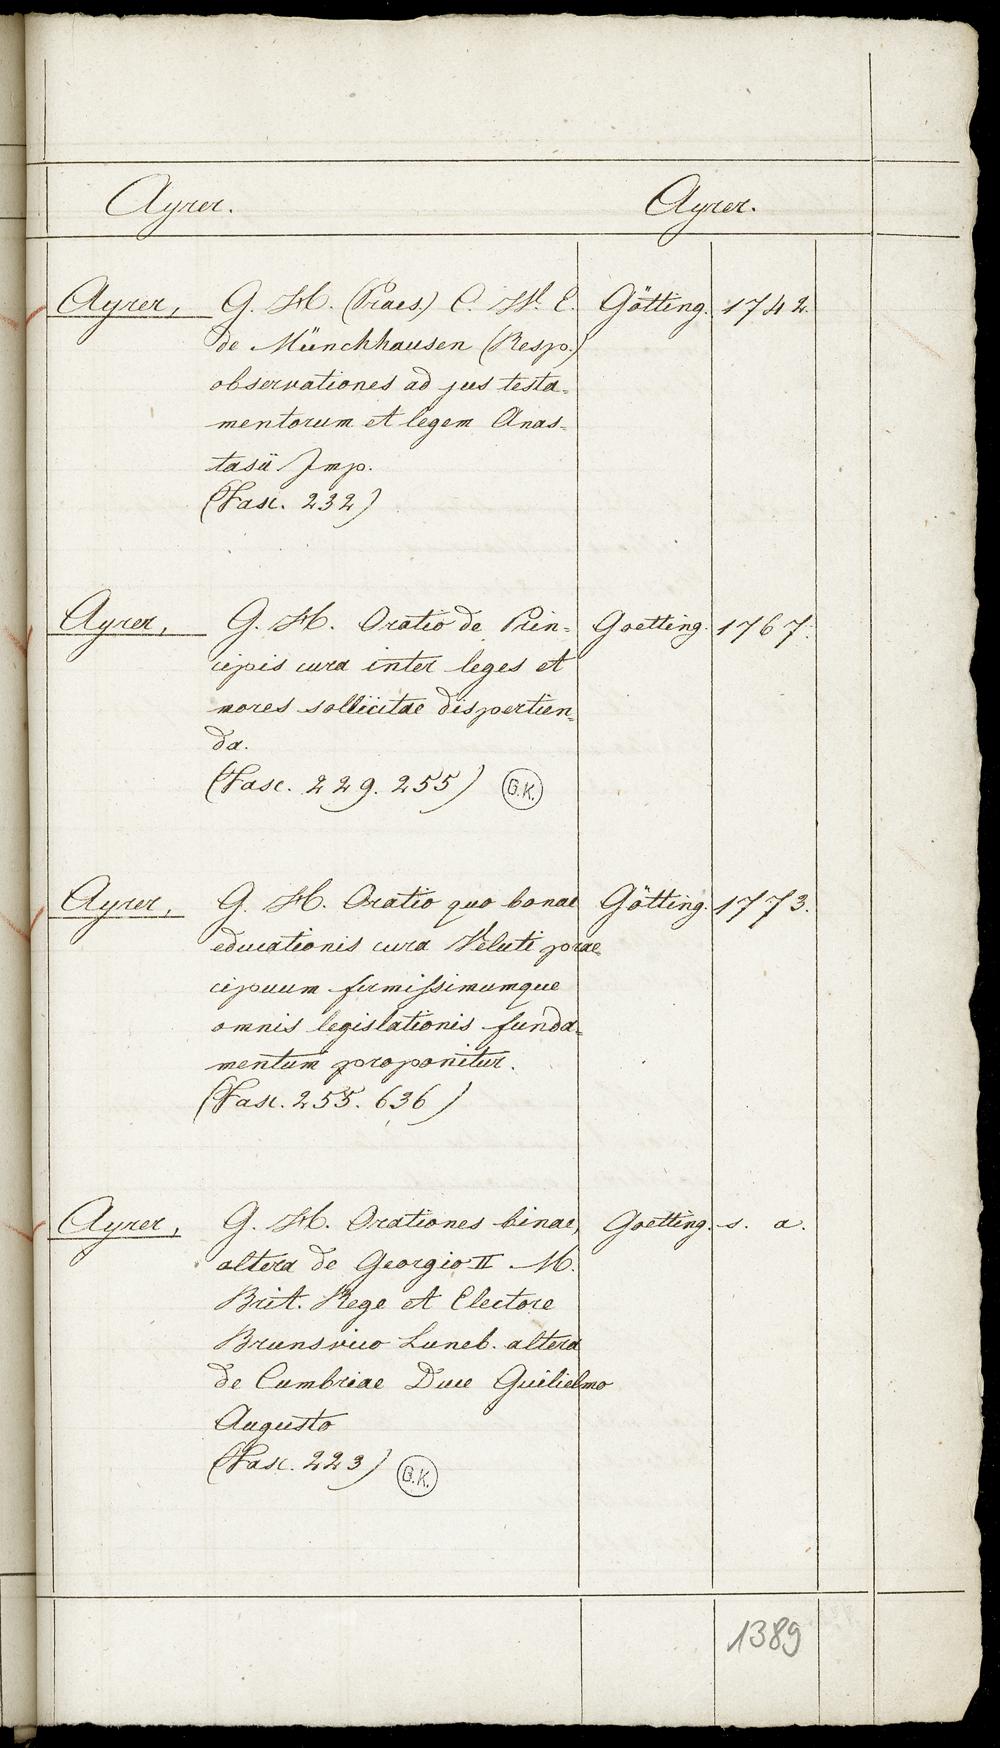 Ayrer. Ayrer.
Ayrer, G. H. (Praes.) C. W. E. Götting. 1742.
de Münchhausen (Resp.)
observationes ad jus testa-
mentorum et legem Anas-
tasii Imp.
(Fasc. 232)
Ayrer, G. H. Oratio de Prin- Goetting. 1767.
cipis cura inter leges et
mores sollicitae dispertien-
da.
(Fasc. 229. 255) G.K.
Ayrer, G. H. Oratio quo bonae Götting. 1773.
educationis cura Veluti prae
cipuum firmissimumque
omnis legislationis funda-
mentum proponitur.
(Fasc. 255. 636)
Ayrer, G. H. Orationes binae, Goetting. s. a.
altera de Georgio II M.
Brit. Rege et Electore
Brunsvico Luneb. altera
de Cumbriae Duce Guilielmo
Augusto
(Fasc. 223) G.K.
1389